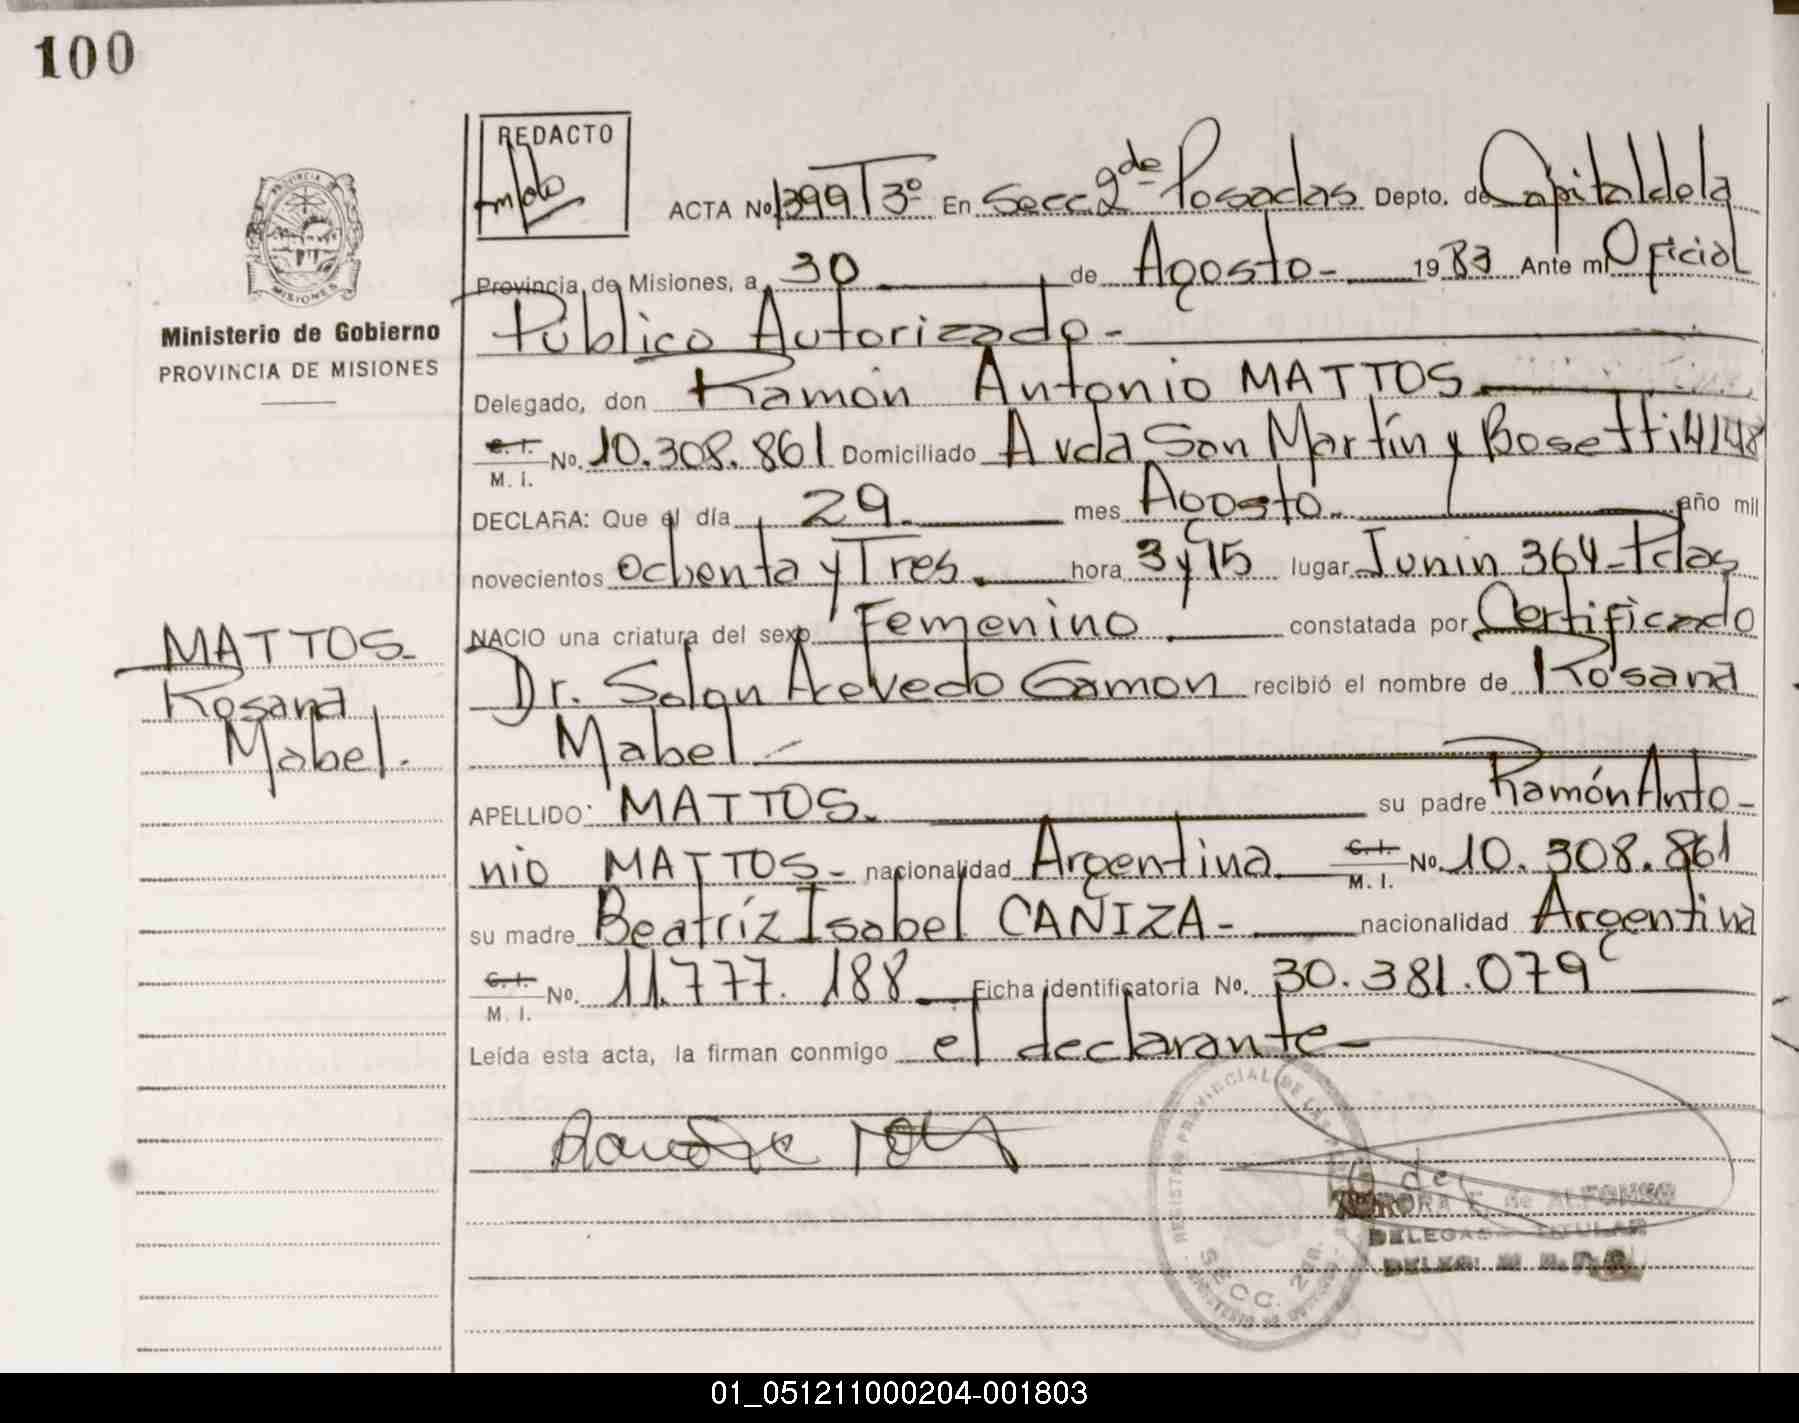 100
REDACTO
ACTA No 1399 T 3º En Secc. 2da Posadas Depto. de Capital de la
Provincia de Misiones, a 30 de Agosto - 1983 Ante mi Oficial
Público Autorizado -
Ministerio de Gobierno
PROVINCIA DE MISIONES
Delegado, don Ramón Antonio MATTOS
C. I. M. I. No. 10.308.861 Domiciliado Avda San Martín y Bosetti 4148
DECLARA: Que el día 29. mes Agosto. año mil
novecientos ochenta y Tres. hora 3 y 15 lugar Junin 364 - Pdas
NACIO una criatura del sexo Femenino constatada por Certificado
Dr. Solon Acevedo Gamon recibió el nombre de Rosana
Mabel -
MATTOS -
Rosana
Mabel.
APELLIDO: MATTOS. su padre Ramón Anto-
nio MATTOS - nacionalidad Argentina C. I. M. I. No. 10.308.861
su madre Beatríz Isabel CAÑIZA - nacionalidad Argentina
C. I. M. I. No. 11.777.188 Ficha identificatoria No. 30.381.079
Leída esta acta, la firman conmigo el declarante -
REGISTRO PROVINCIAL DE LAS
SECC. 2da.
de ALFONSO
DELEGADA TITULAR
01_051211000204-001803